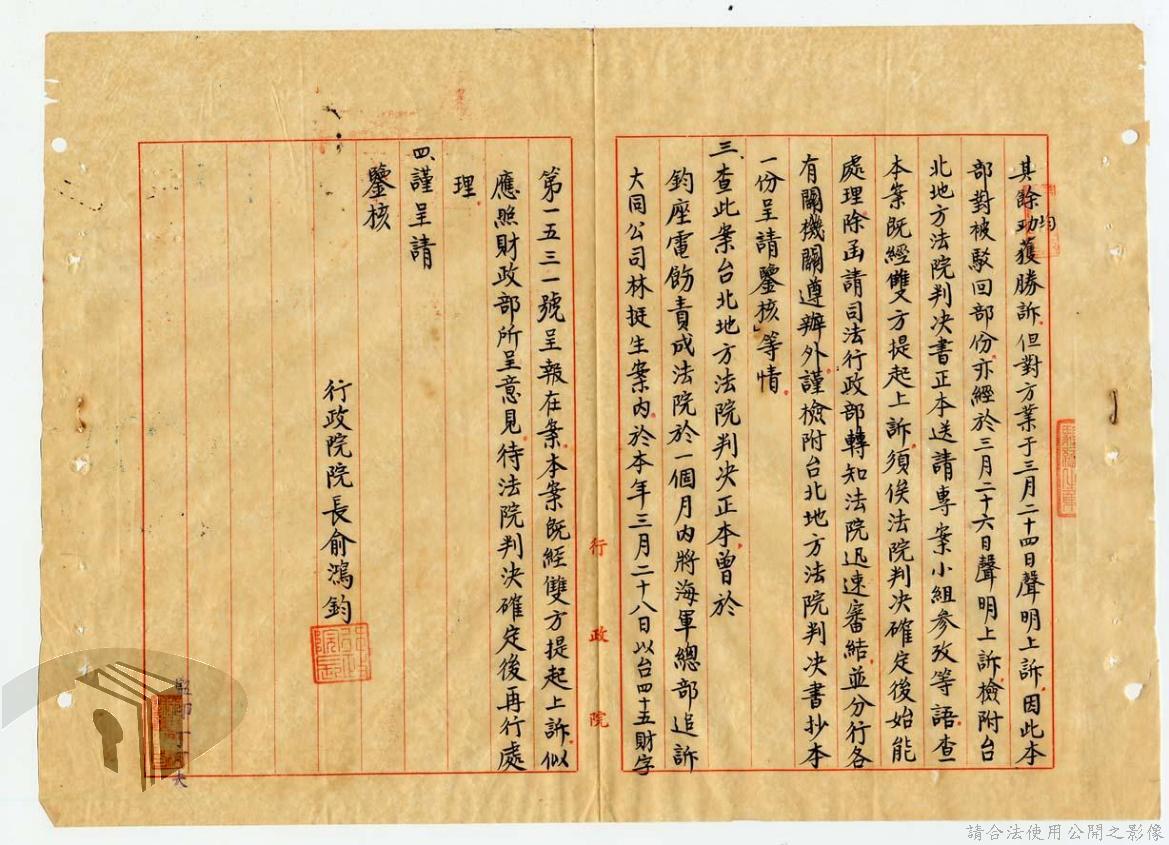 其餘均獲勝訴。但對方業于三月二十四日聲明上訴。因此本
部對被駁回部份。亦經於三月二十六日聲明上訴。檢附台
北地方法院判决書正本送請專案小組參攷等語。查
本案既經雙方提起上訴。須俟法院判决確定後始能
處理除函請司法行政部轉知法院迅速審結。並分行各
有關機關遵辦外。謹檢附台北地方法院判决書抄本
一份呈請鑒核」等情。
三、查此案台北地方法院判决正本。曾於
鈞座電飭責成法院於一個月內將海軍總部追訴
大同公司林挺生案內。於本年三月二十八日以台四十五財字
第一五三一號呈報在案。本案既經雙方提起上訴。似
應照財政部所呈意見。待法院判决確定後再行處
理。
四、謹呈請
鑒核
行政院院長俞鴻鈞
行政院院長
行政院
監印
請合法使用公開之影像